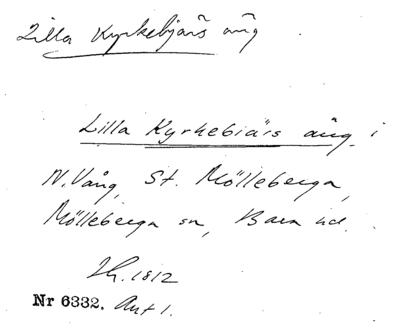 Lilla Kyrkebjärs äng
Lilla Kyrkebiärs äng i
N. Vång, St. Mölleberga,
Mölleberga sn, Bara hd.
Sk. 1812
Nr 6332. Akt 1.